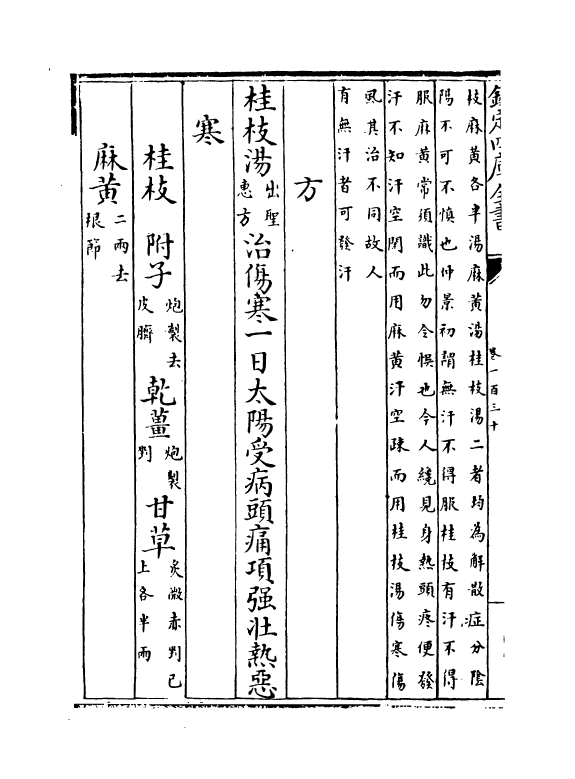 欽定四庫全書
卷一百三十
枝麻黃各半湯麻黃湯桂枝湯二者均為解散症分陰
陽不可不慎也仲景初謂無汗不得服桂枝有汗不得
服麻黃常須識此勿令悞也今人纔見身熱頭疼便發
汗不知汗空閉而用麻黃汗空疎而用桂枝湯傷寒傷
風其治不同故人
有無汗者可發汗
方
桂枝湯出聖
惠方治傷寒一日太陽受病頭痛項强壯熱惡
寒
桂枝 附子炮製去
皮臍 乾薑炮製
剉 甘草炙微赤剉已
上各半兩
麻黃二兩去
根節